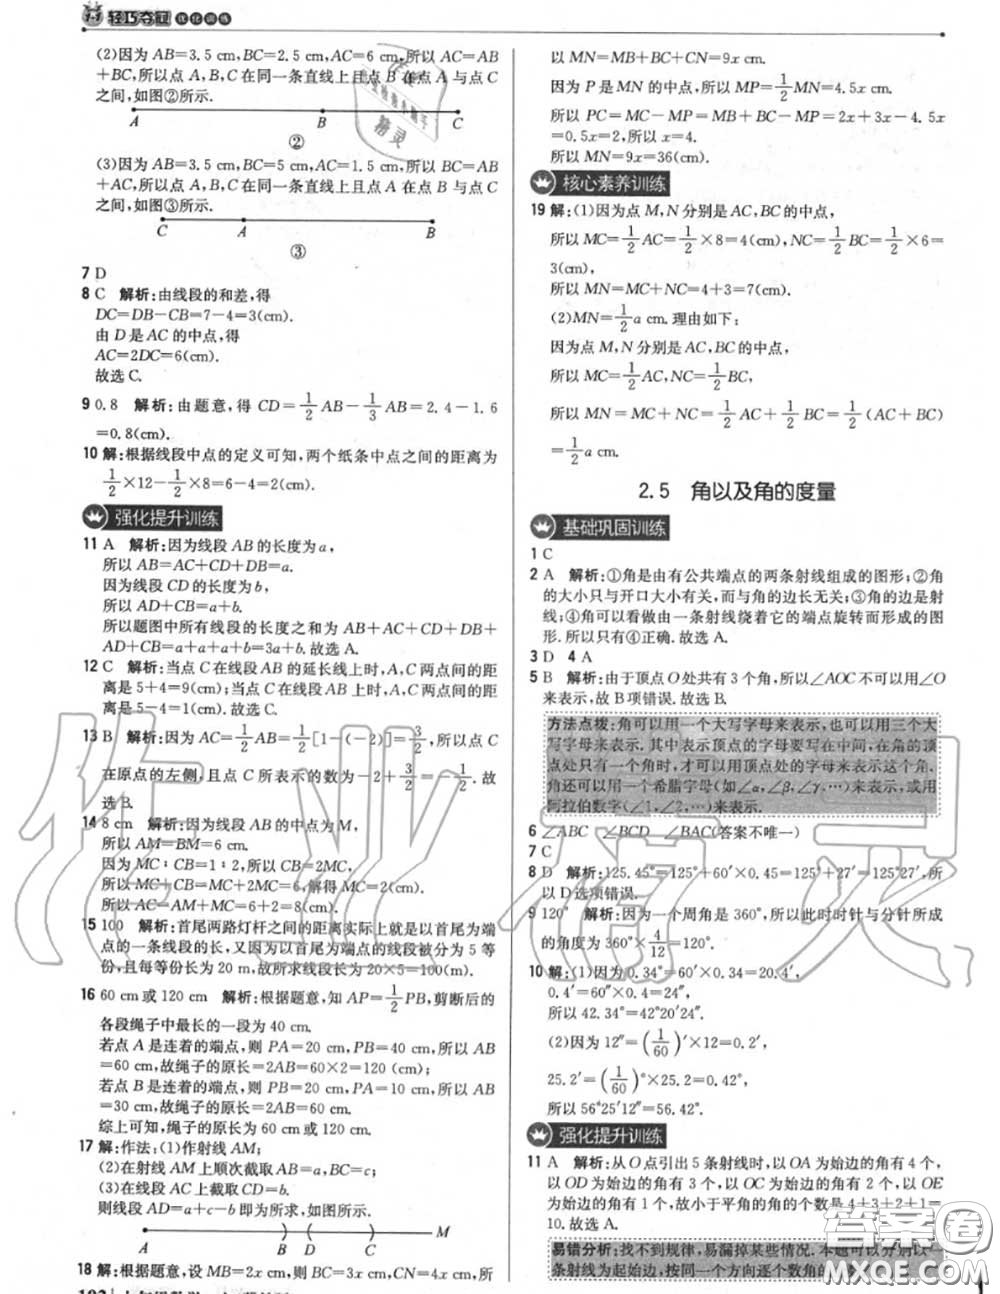 1+1 轻巧夺冠 优化训练
(2)因为 AB=3.5 cm,BC=2.5 cm,AC=6 cm,所以 AB
+BC,所以点 A,B,C 在同一条直线上且点 B 在点 A 与点 C
之间,如图②所示.
A B C
②
(3)因为 AB=3.5 cm,BC=5 cm,AC=1.5 cm,所以 BC=AB
+AC,所以点 A,B,C 在同一条直线上且点 A 在点 B 与点
C 之间,如图③所示.
C A B
③
7 D
8 C 解析:由线段的和差,得
DC=DB-CB=7-4=3(cm).
由 D 是 AC 的中点,得
AC=2DC=6(cm).
故选 C.
9 0.8 解析:由题意,得 CD=1/2 AB-1/3 AB=2.4-1.6
=0.8(cm).
10 解:根据线段中点的定义可知,两个纸条中点之间的距离为
1/2×12-1/2×8=6-4=2(cm).
强化提升训练
11 A 解析:因为线段 AB 的长度为 a,
所以 AB=AC+CD+DB=a.
因为线段 CD 的长度为 b,
所以 AD+CB=a+b.
所以题图中所有线段的长度之和为 AB+AC+CD+DB+
AD+CB=a+a+a+b=3a+b.故选 A.
12 C 解析:当点 C 在线段 AB 的延长线上时,A,C 两点间的距
离是 5+4=9(cm);当点 C 在线段 AB 上时,A,C 两点间的距
离是 5-4=1(cm).故选 C.
13 B 解析:因为 AC=1/2 AB=1/2[1-(-2)]=3/2,所以点 C
在原点的左侧,且点 C 所表示的数为-2+3/2=-1/2.故
选 B.
14 8 cm 解析:因为线段 AB 的中点为 M,
所以 AM=BM=6 cm.
因为 MC∶CB=1∶2,所以 CB=2MC.
所以 MC+CB=3MC=6,解得 MC=2(cm).
所以 AC=AM+MC=6+2=8(cm).
15 100 解析:首尾两路灯杆之间的距离实际上就是以首尾为端
点的一条线段的长,又因为以首尾为端点的线段被分为 5 等
份,且每等份长为 20 m,故所求线段长为 20×5=100(m).
16 60 cm 或 120 cm 解析:根据题意,知 AP=1/2 PB,剪断后的
各段绳子中最长的一段为 40 cm.
若点 A 是连着的端点,则 PA=20 cm,PB=40 cm,所以 AB
=60 cm,故绳子的原长=2AB=60×2=120 (cm).
若点 B 是连着的端点,则 PA=20 cm,PB=10 cm,所以 AB
=30 cm,故绳子的原长=2AB=60(cm).
综上可知,绳子的原长为 60 cm 或 120 cm.
17 解:作法:(1)作射线 AM;
(2)在射线 AM 上顺次截取 AB=a,BC=c;
(3)在线段 AC 上截取 CD=b.
则线段 AD=a+c-b 即为所求,如图.
A B D C M
18 解:根据题意,设 MB=2x cm,则 BC=3x cm,CN=4x cm,所
以 MN=MB+BC+CN=9x cm.
因为 P 是 MN 的中点,所以 MP=1/2 MN=4.5x cm.
所以 PC=MC-MP=MB+BC-MP=2x+3x-4.5x
=0.5x=2,所以 x=4.
所以 MN=9x=36(cm).
核心素养训练
19 解:(1)因为点 M,N 分别是 AC,BC 的中点,
所以 MC=1/2 AC=1/2×8=4(cm),NC=1/2 BC=1/2×6=
3(cm),
所以 MN=MC+NC=4+3=7(cm).
(2)MN=1/2 a cm.理由如下:
因为点 M,N 分别是 AC,BC 的中点,
所以 MC=1/2 AC,NC=1/2 BC,
所以 MN=MC+NC=1/2 AC+1/2 BC=1/2(AC+BC)
=1/2 a cm.
2.5 角以及角的度量
基础巩固训练
1 C
2 A 解析:①角是由有公共端点的两条射线组成的图形;②角
的大小只与开口大小有关,而与角的边长无关;③角的边是射
线;④角可以看做由一条射线绕着它的端点旋转而形成的图
形.所以只有④正确.故选 A.
3 D 4 A
5 B 解析:由于顶点 O 处共有 3 个角,所以∠AOC 不可以用∠O
来表示,故 B 项错误.故选 B.
方法点拨:角可以用一个大写字母来表示,也可以用三个大
写字母来表示.其中表示顶点的字母要写在中间,在角的顶
点处只有一个角时,才可以用顶点处的字母来表示这个角.
角还可以用一个希腊字母(如∠α,∠β,∠γ,…)来表示,或用
阿拉伯数字(∠1,∠2,…)来表示.
6 ∠ABC ∠BCD ∠BAC(答案不唯一)
7 C
8 D 解析:125.45°=125°+60′×0.45=125°+27′=125°27′,所
以 D 选项错误.
9 120° 解析:因为一个周角是 360°,所以此时时针与分针所成
的角度为 360°×4/12=120°.
10 解:(1)因为 0.34°=60′×0.34=20.4′,
0.4′=60″×0.4=24″,
所以 42.34°=42°20′24″.
(2)因为 12″=(1/60)′×12=0.2′,
25.2′=(1/60)°×25.2=0.42°,
所以 56°25′12″=56.42°.
强化提升训练
11 A 解析:从 O 点引出 5 条射线时,以 OA 为始边的角有 4 个,
以 OD 为始边的角有 3 个,以 OC 为始边的角有 2 个,以 OE
为始边的角有 1 个,故小于平角的角的个数是 4+3+2+1=
10.故选 A.
易错分析:找不到规律,易漏掉某些情况.本题可以分别以一
条射线为起始边,按同一个方向逐个数角的
作业精灵
答案圈
MXQE.COM